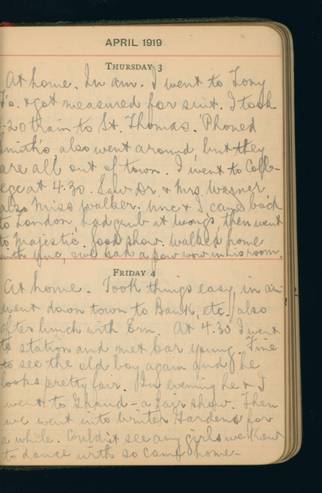 APRIL 1919
THURSDAY 3
At home. In am. I went to Tony
Jo. & got measured for suit. I took
2.20 train to St. Thomas. Phoned
Smith's also went around, but they
are all out of town. I went to Coll-
ege at 4.30. Saw Dr & Mrs Warner
also Miss Walker. Unc & I came back
to London had grub at Wongs, then went
to Majestic, good show, walked home
with Unc, and had a pow wow in his room.
FRIDAY 4
At home. Took things easy in am
went down town to Bank, etc. also
after lunch with Em. At 4.30 I went
to station and met Car Young. Fine
to see the old boy again and he
looks pretty fair. In evening he & I
went to Grand - a fair show. Then
we went into Winter Gardens for
a while. Couldn't see any girls we knew
to dance with so came home.